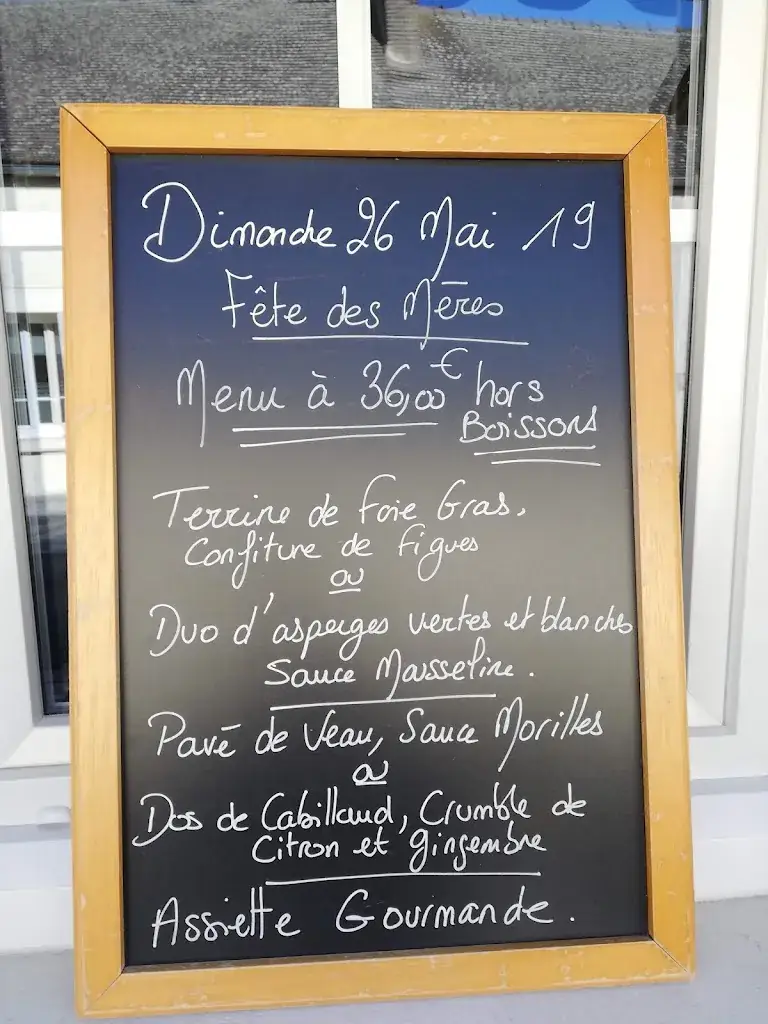 Dimanche 26 Mai 19
Fête des Mères
Menu à 36,00€ hors
Boissons
Terrine de Foie Gras,
Confiture de Figues
ou
Duo d'asperges vertes et blanches
Sauce Mousseline.
Pavé de Veau, Sauce Morilles
ou
Dos de Cabillaud, Crumble de
Citron et gingembre
Assiette Gourmande.